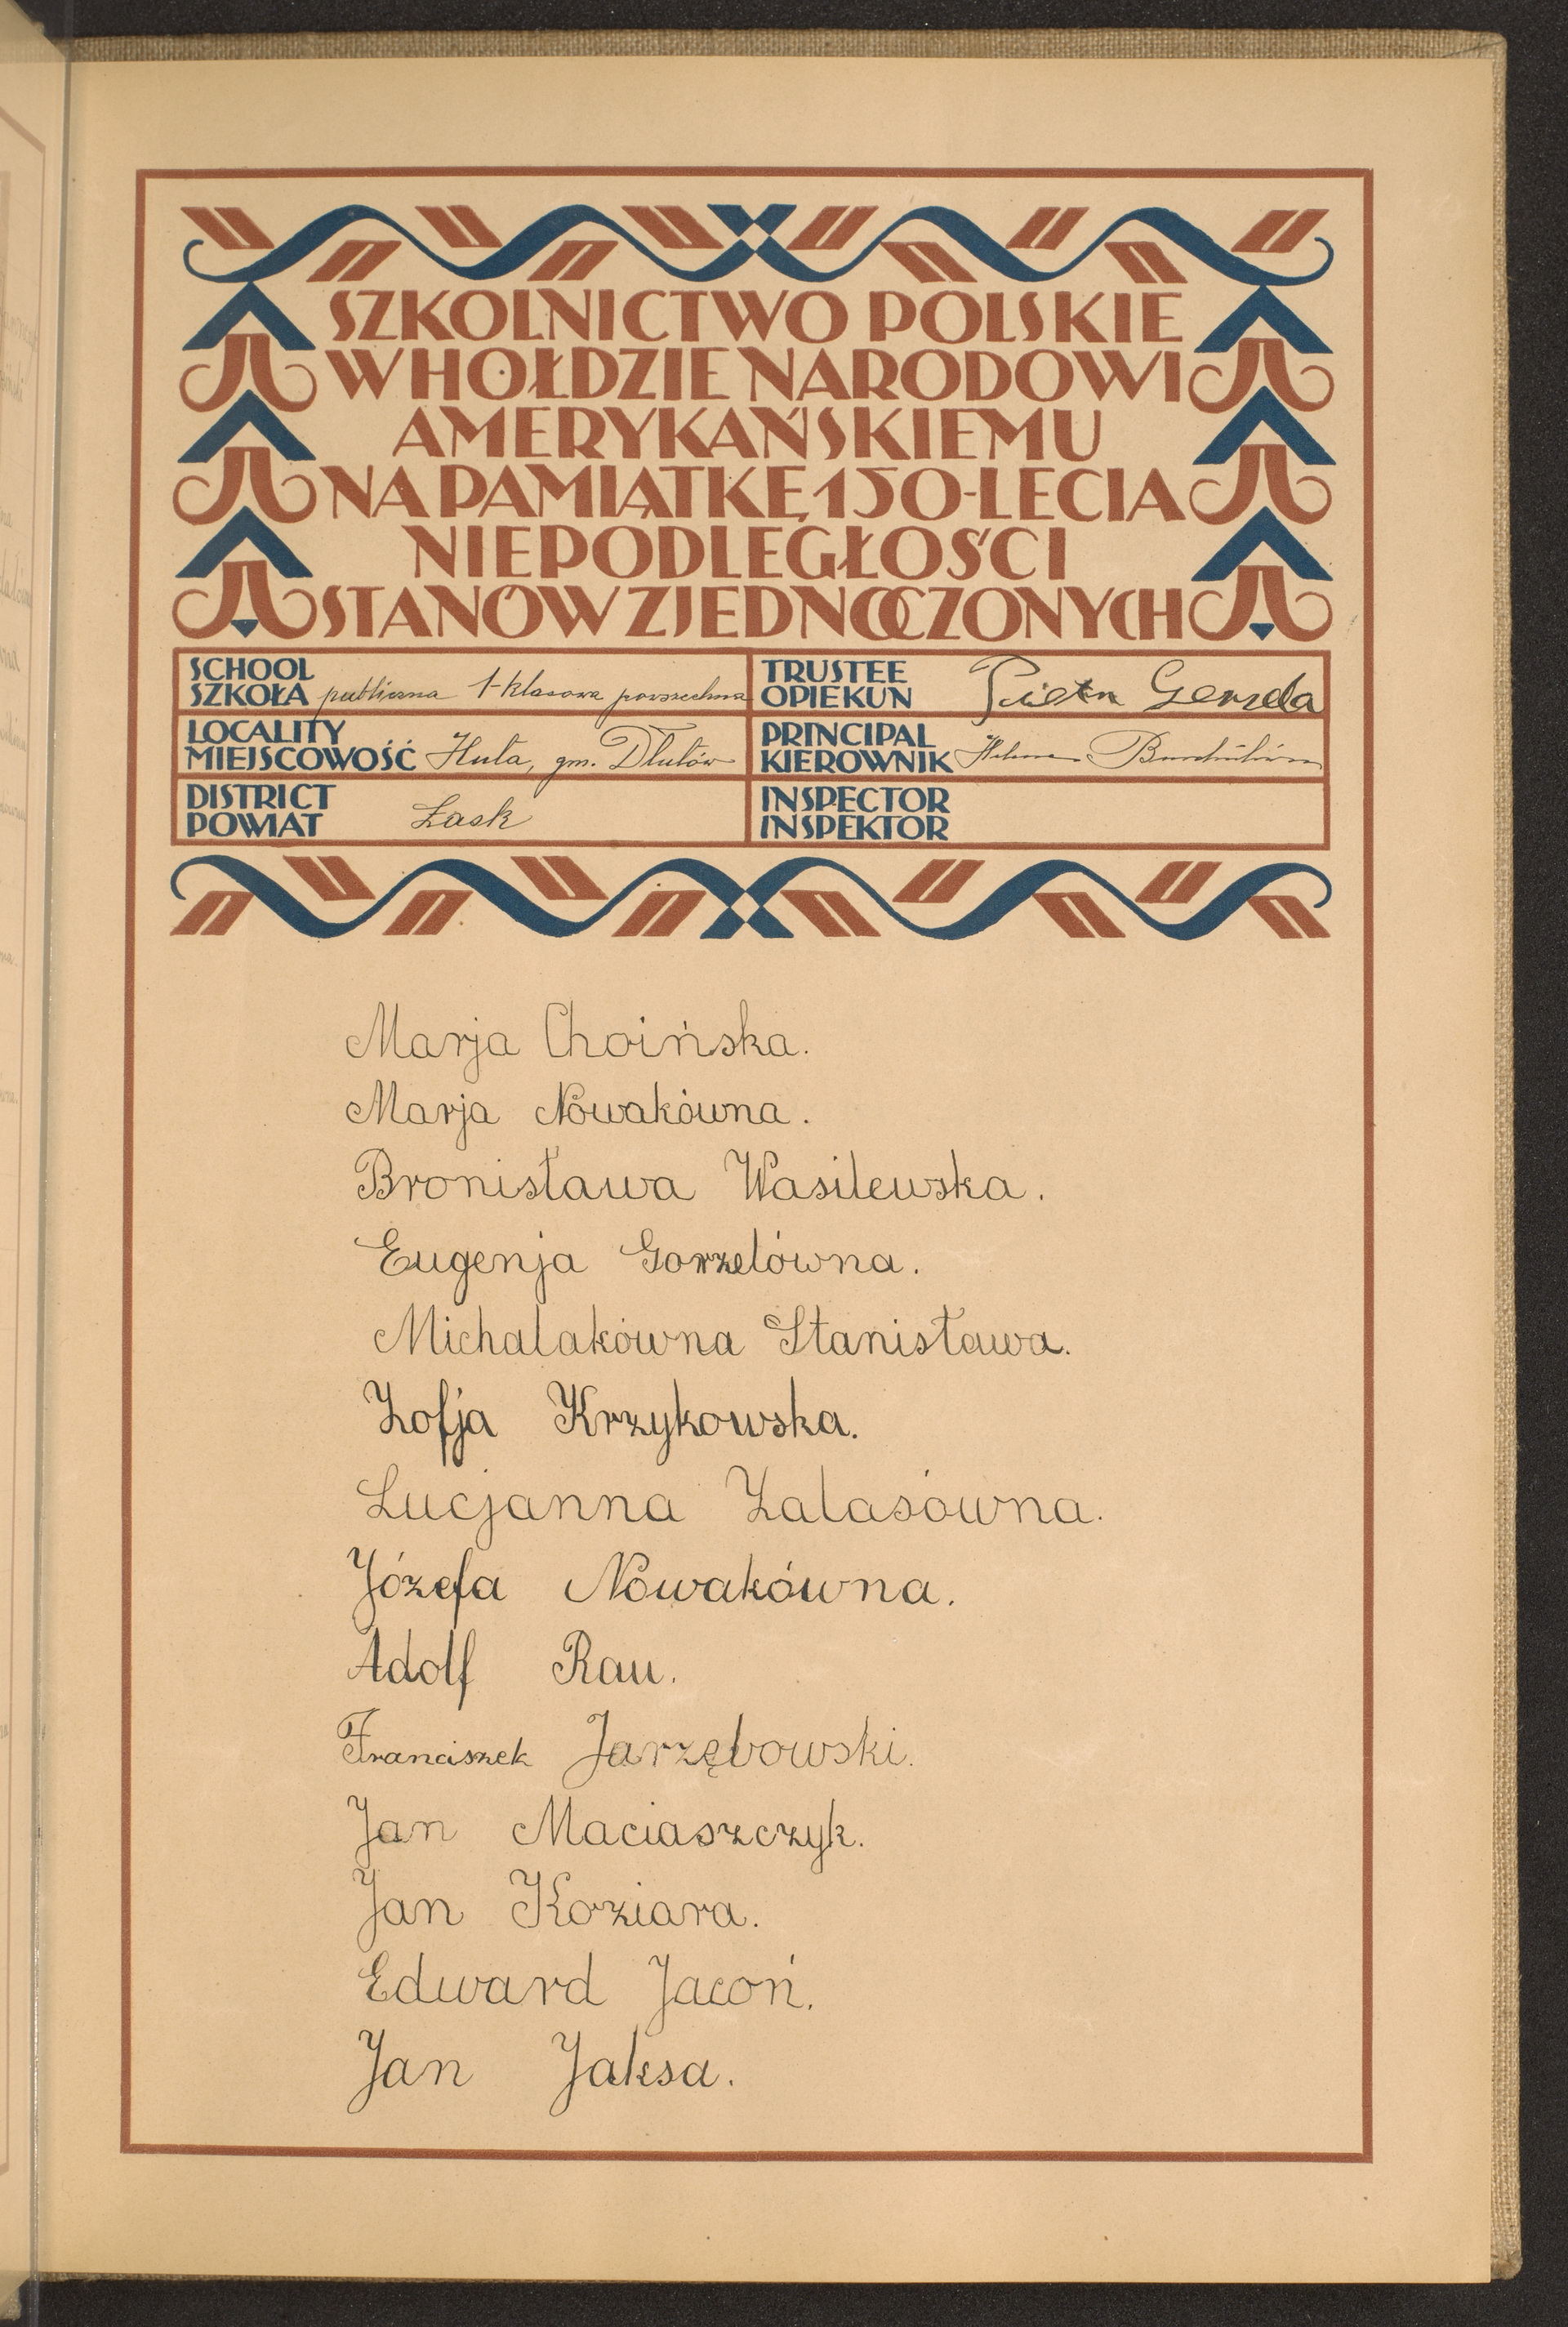 SZKOLNICTWO POLSKIE
W HOŁDZIE NARODOWI
AMERYKAŃSKIEMU
NA PAMIĄTKĘ 150-LECIA
NIEPODLEGŁOŚCI
STANÓW ZJEDNOCZONYCH
SCHOOL
SZKOŁA publiczna 1-klasowa powszechna
TRUSTEE
OPIEKUN
LOCALITY
MIEJSCOWOŚĆ Huta, gm. Dłutów
PRINCIPAL
KIEROWNIK
DISTRICT
POWIAT Łask
INSPECTOR
INSPEKTOR
Marja Choińska.
Marja Nowakówna.
Bronisława Wasilewska.
Eugenja Gorzelówna.
Michalakówna Stanisława.
Zofja Krzykowska.
Lucjanna Zalasówna.
Józefa Nowakówna.
Adolf Rau.
Franciszek Jarzębowski.
Jan Maciaszczyk.
Jan Koziara.
Edward Jacoń.
Jan Jaksa.